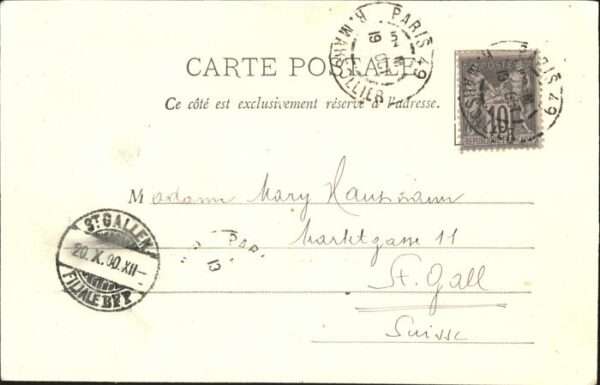 PARIS 49
CARTE POSTALE
Ce côté est exclusivement réservé à l'adresse.
10
PARIS 49
Madame Mary Hausmann
Marktgasse 11
St. Gall
Suisse
ST GALLEN
20.X.00.XII-
FILIALE BFP
PARI
19